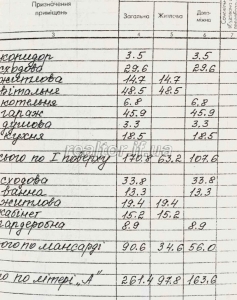 Призначення приміщень Загальна Житлова Допо-міжна
3 4 5 6 7
коридор 3.5 3.5
сходова 29.6 29.6
житлова 14.7 14.7
вітальне 48.5 48.5
котельне 6.8 6.8
гараж 45.9 45.9
душова 3.3 3.3
кухня 18.5 18.5
сього по I поверху 170.8 63.2 107.6
realtor.if.ua
сходова 33.8 33.8
ванна 13.3 13.3
житлова 19.4 19.4
кабінет 15.2 15.2
гардеробна 8.9 8.9
ого по мансарді 90.6 34.6 56.0
о по літері „А" 261.4 97.8 163.6